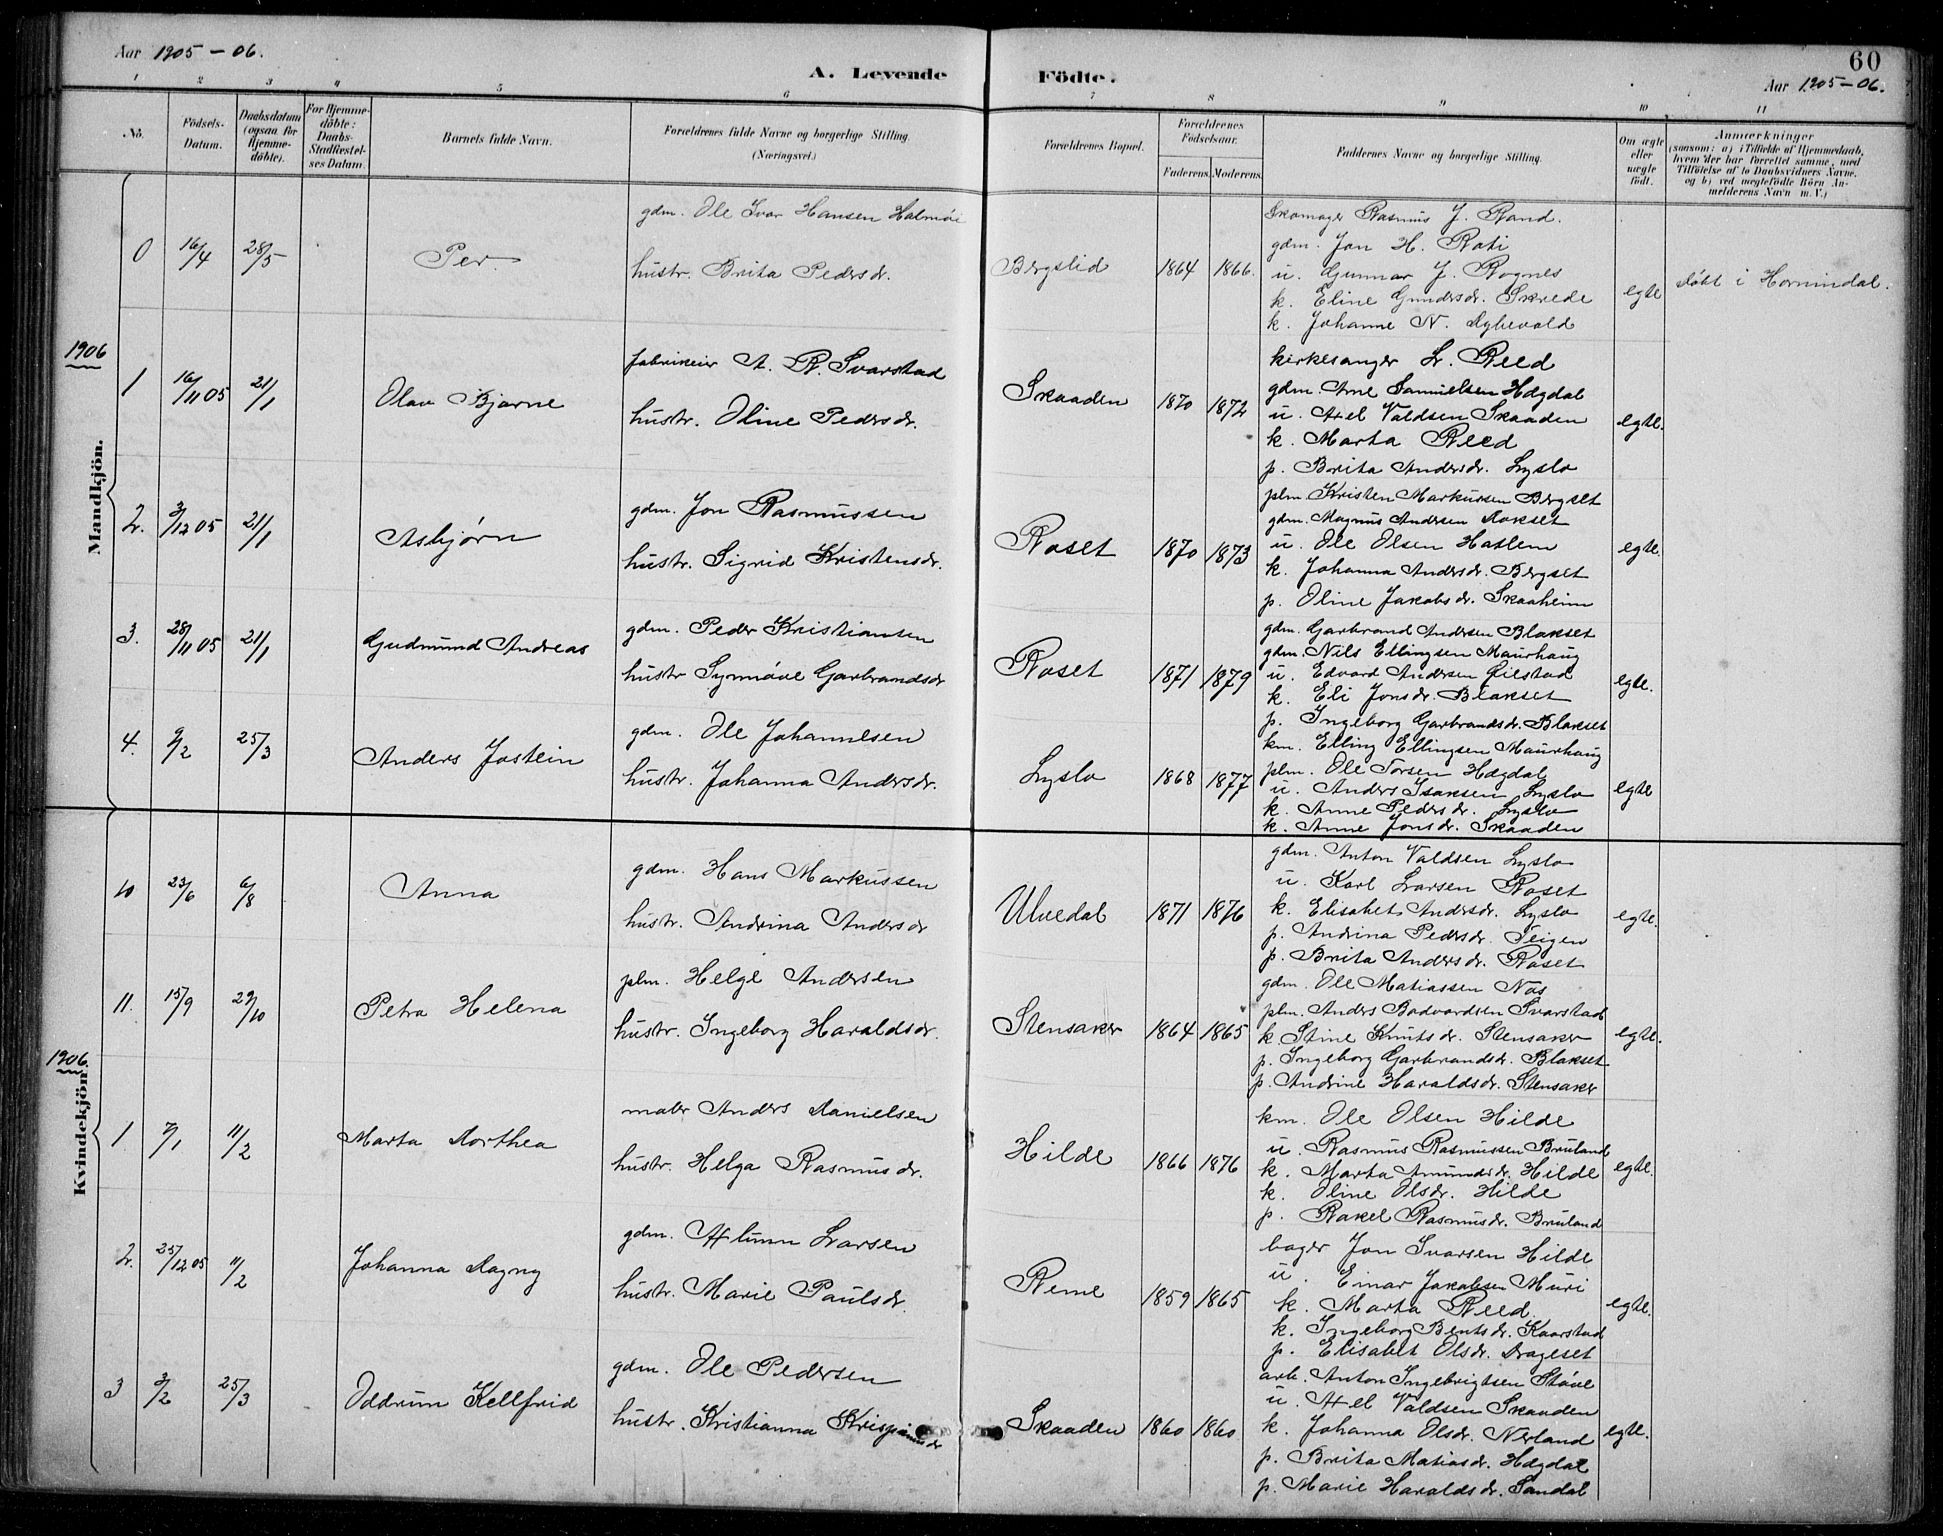 Aar 1905-06.
A. Levende Födte.
60
Aar 1905-06.
1 2 3 4 5 6 7 8 9 10 11
No.
Födsels-Datum.
Daabsdatum (ogsaa for Hjemme-döbte).
For Hjemme-döbte: Daabs-Stadfæstel-ses Datum.
Barnets fulde Navn.
Forældrenes fulde Navne og borgerlige Stilling. (Næringsvei.)
Forældrenes Bopæl.
Forældrenes Födselsaar.
Faderens. Moderens.
Faddernes Navne og borgerlige Stilling.
Om ægte eller uægte födt.
Anmærkninger
(saasom: a) i Tilfælde af Hjemmedaab, hvem der har forrettet samme, med Tilföielse af to Daabsvidners Navne. og b) ved uægtefödte Börn An-melderens Navn m. V.)
Mandkjön.
0 16/4 28/5 Per.
gdm. Ole Ivar Hansen Holmöi
hustr. Brita Pedersdr.
Bergslid 1864 1866.
Skomager Rasmus J. Rand.
gdm. Jon H. Roti
u. Gunnar J. Rognes
k. Eline Gundersdr. Skrede
k. Johanne N. Dybevald
egte
døbt i Hornindal.
1906
1 16/11 05 21/1 Olav Bjarne
fabrikeier A. R. Svarstad
hustr. Oline Pedersdr.
Skaaden 1870 1872
kirkesanger L. Reed
gdm. Arne Samuelsen Hægdal
u. Axel Valdsen Skaaden
k. Marta Reed
p. Brita Andersdr. Lyslo
egte.
2. 3/12 05 21/1 Asbjørn
gdm. Jon Rasmussen
hustr. Sigrid Kristensdr.
Roset 1870 1873
plm. Kristen Markussen Bergset
gdm. Magnus Andersen Dokset
u. Ole Olsen Haslem
k. Johanna Andersdr. Bergset
p. Oline Jakobsdr. Skaaheim
egte.
3. 28/11 05 21/1 Gudmund Andreas
gdm. Peder Kristiansen
hustr Synnöve Garbrandsdr
Roset 1871 1879
gdm. Garbrand Andersen Blakset
gdm. Nils Ellingsen Maurhaug
u. Edvard Andersen Øilstad
k. Eli Jonsdr. Blakset
p. Ingeborg Garbrandsdr. Blakset
egte.
4. 9/2 25/3 Anders Jostein
gdm. Ole Johannesen
hustr. Johanna Andersdr.
Lyslo 1868 1877
km. Elling Ellingsen Maurhaug
plm. Ole Torsen Hægdal
u. Anders Isaksen Lyslo
k. Anne Pedersdr. Lyslo
k. Anne Jonsdr. Skaaden
egte
Kvindekjön.
10 23/6 6/8 Anna
gdm. Hans Markussen
hustr. Andrina Andersdr
Ulvedal 1871 1876
gdm. Anton Valdsen Lyslo
u. Karl Larsen Roset
k. Elisabet Andersdr. Lyslo
p. Andrina Pedersdr. Teigen
p. Brita Andersdr. Roset
egte.
11. 15/9 29/10 Petra Helena
plm. Helge Andersen
hustr. Ingeborg Haraldsdr.
Stensaker 1864 1865
gdm. Ole Matiassen Nos
plm. Anders Bodvardsen Svarstad
k. Stine Knutsdr. Stensaker
p. Ingeborg Garbrandsdr. Blakset
p. Andrine Haraldsdr. Stensaker
egte.
1906
1 7/1 11/2 Marta Dorthea
maler Anders Danielsen
hustr. Helga Rasmusdr.
Hilde 1866 1876
km. Ole Olsen Hilde
u. Rasmus Rasmussen Bruland
k. Marta Amundsdr. Hilde
k. Oline Olsdr. Hilde
p. Rakel Rasmusdr. Bruland
egte.
2. 25/12 05 11/2 Johanna Dagny
gdm. Larsen
hustr. Marie Paulsdr.
Reme 1859 1865
bager Jon Ivarsen Hilde
u. Einar Jakobsen Muri
k. Marta Reed
k. Ingeborg Bentsdr. Kaarstad
p. Elisabet Olsdr. Drageset
egte.
3 3/2 25/3 Oddrun Kellfrid
gdm. Ole Pedersen
hustr. Kristianna
Skaaden 1860 1860
arb. Anton Ingebrigtsen Støve
u. Axel Valdsen Skaaden
k. Johanna Olsdr. Nerland
p. Brita Matiasdr. Hægdal
p. Marie Haraldsdr. Sandal
egte.